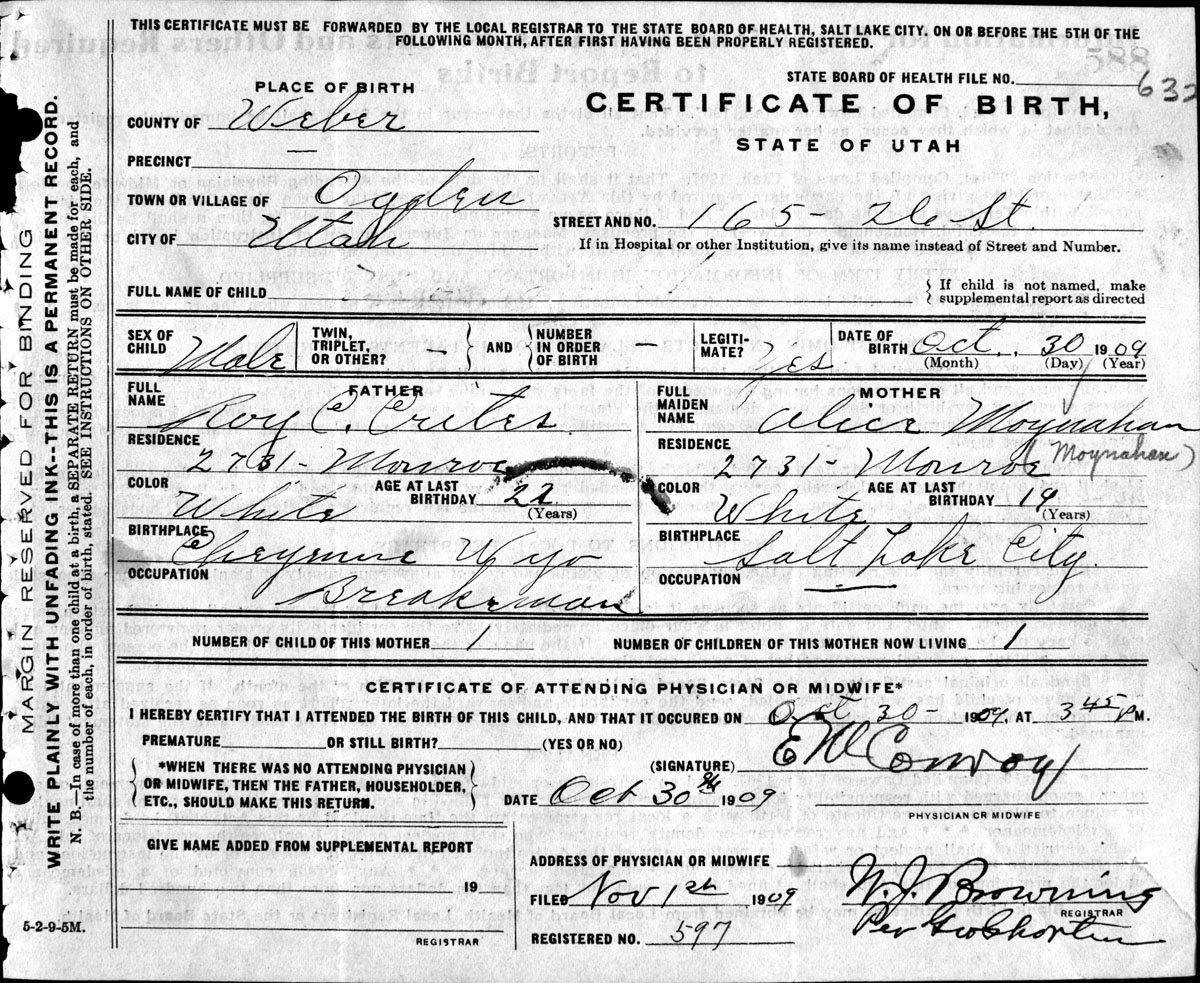 THIS CERTIFICATE MUST BE FORWARDED BY THE LOCAL REGISTRAR TO THE STATE BOARD OF HEALTH, SALT LAKE CITY. ON OR BEFORE THE 5TH OF THE
FOLLOWING MONTH, AFTER FIRST HAVING BEEN PROPERLY REGISTERED.
STATE BOARD OF HEALTH FILE NO. 632
885
PLACE OF BIRTH
CERTIFICATE OF BIRTH,
STATE OF UTAH
COUNTY OF Weber
PRECINCT —
TOWN OR VILLAGE OF Ogden
CITY OF Utah
STREET AND NO. St.
If in Hospital or other Institution, give its name instead of Street and Number.
FULL NAME OF CHILD
If child is not named, make
supplemental report as directed
SEX OF CHILD Male
TWIN, TRIPLET, OR OTHER? -
AND
NUMBER IN ORDER OF BIRTH
LEGITIMATE? Yes
DATE OF BIRTH Oct. 30 1909
(Month) (Day) (Year)
FATHER
FULL NAME Roy C. Crites.
RESIDENCE
2731 - Monroe
COLOR White
AGE AT LAST BIRTHDAY 22
(Years)
BIRTHPLACE Cheyenne Wyo
OCCUPATION Breakeman
MOTHER
FULL MAIDEN NAME Alice Moynahan
RESIDENCE (Moynahan)
2731 - Monroe
COLOR White
AGE AT LAST BIRTHDAY 19
(Years)
BIRTHPLACE Salt Lake City.
OCCUPATION —
NUMBER OF CHILD OF THIS MOTHER 1
NUMBER OF CHILDREN OF THIS MOTHER NOW LIVING 1
CERTIFICATE OF ATTENDING PHYSICIAN OR MIDWIFE*
I HEREBY CERTIFY THAT I ATTENDED THE BIRTH OF THIS CHILD, AND THAT IT OCCURED ON Oct 30 - 1909. AT 3 45 P M.
PREMATURE OR STILL BIRTH? (YES OR NO)
(SIGNATURE) E W Conroy
*WHEN THERE WAS NO ATTENDING PHYSICIAN
OR MIDWIFE, THEN THE FATHER, HOUSEHOLDER,
ETC., SHOULD MAKE THIS RETURN.
DATE Oct 30 th 1909
PHYSICIAN OR MIDWIFE
GIVE NAME ADDED FROM SUPPLEMENTAL REPORT
19
REGISTRAR
5-2-9-5M.
ADDRESS OF PHYSICIAN OR MIDWIFE
FILED Nov 1st 1909
W. J. Browning
REGISTRAR
REGISTERED NO. 597
Per
MARGIN RESERVED FOR BINDING
WRITE PLAINLY WITH UNFADING INK--THIS IS A PERMANENT RECORD.
N. B.—In case of more than one child at a birth, a SEPARATE RETURN must be made for each, and
the number of each, in order of birth, stated. SEE INSTRUCTIONS ON OTHER SIDE.